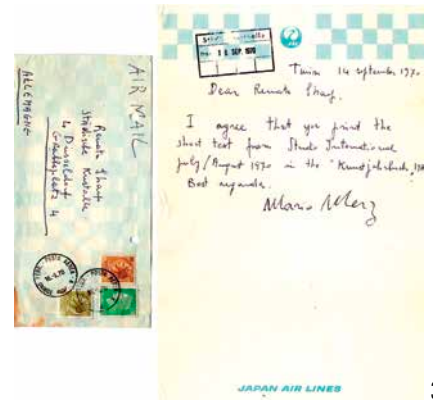 AIR MAIL
ALLEMAGNE
Renata Sharp
Städtische Kunsthalle
4 Dusseldorf
Grabbeplatz 4
18. SEP. 1970
Turin 14 september 1970
Dear Renata Sharp.
I agree that you print the
short text from Studio International
july/August 1970 in the "Kunstjahrbuch
Best regards.
Mario Merz
JAPAN AIR LINES
3